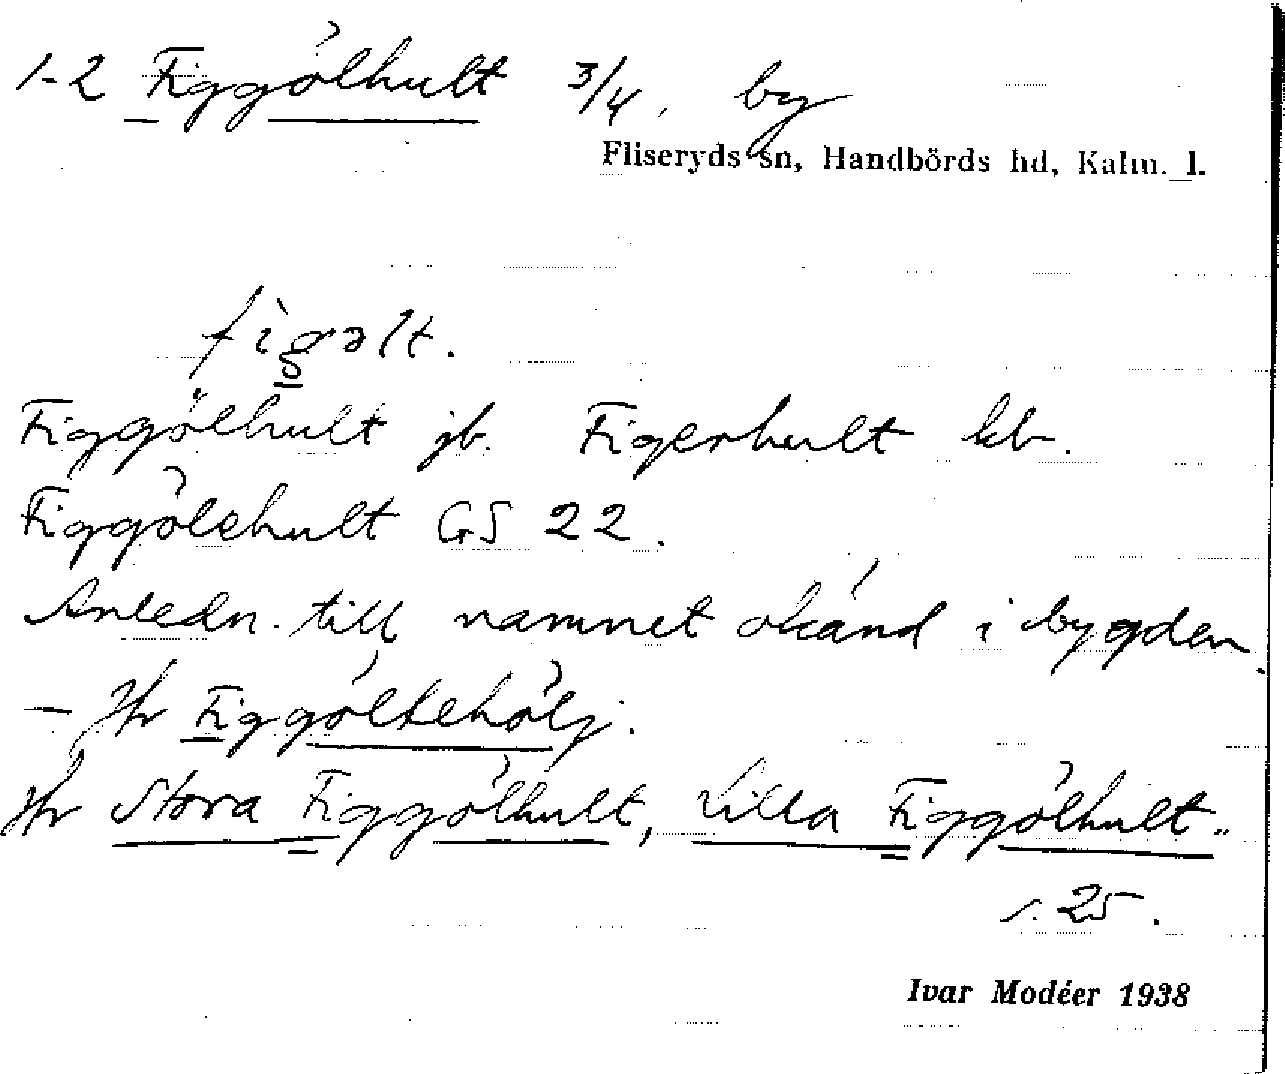 1-2 Figgölhult 3/4. by
Fliseryds sn, Handbörds hd, Kalm. l.
fìgəlt.
Figgölhult jb. Figerhult kb.
Figgölehult GS 22.
Anledn. till namnet okänd i bygden.
— Jfr Figgöltehölj.
Jfr Stora Figgölhult, Lilla Figgölhult..
s. 25.
Ivar Modéer 1938